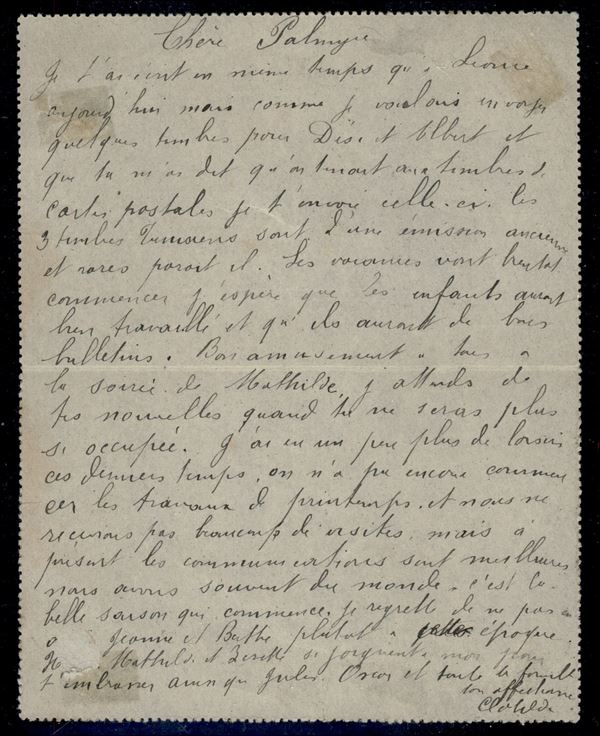 Chère Palmyre
Je t'ai écrit en même temps qu'à Leonie
aujourd'hui mais comme je voulais envoyer
quelques timbres pour Dési et Albert et
que tu m'as dit qu'on tenait aux timbres d.
cartes postales je t'envoie celle-ci. les
3 timbres Tunisiens sont d'une émission ancienne
et rares parait il. Les vacances vont bientot
commencer j'espère que tes enfants auront
bien travaillé et qu'ils auront de bons
bulletins. Bon amusement a tous a
la soirée de Mathilde, j'attends de
tes nouvelles quand tu ne seras plus
si occupée. J'ai eu un peu plus de loisirs
ces derniers temps, on n'a pu encore commen
cer les travaux de printemps. et nous ne
recevons pas beaucoup de visites, mais à
présent les communications sont meilleures
nous avons souvent du monde. c'est la
belle saison qui commence. je regrette de ne pas
Jeanne et Berthe plutot a époque.
Mathilde et se joignent a moi pour
t'embrasser ainsi que Jules. Oscar et toute la famille
ton affectionnée
Clotilde